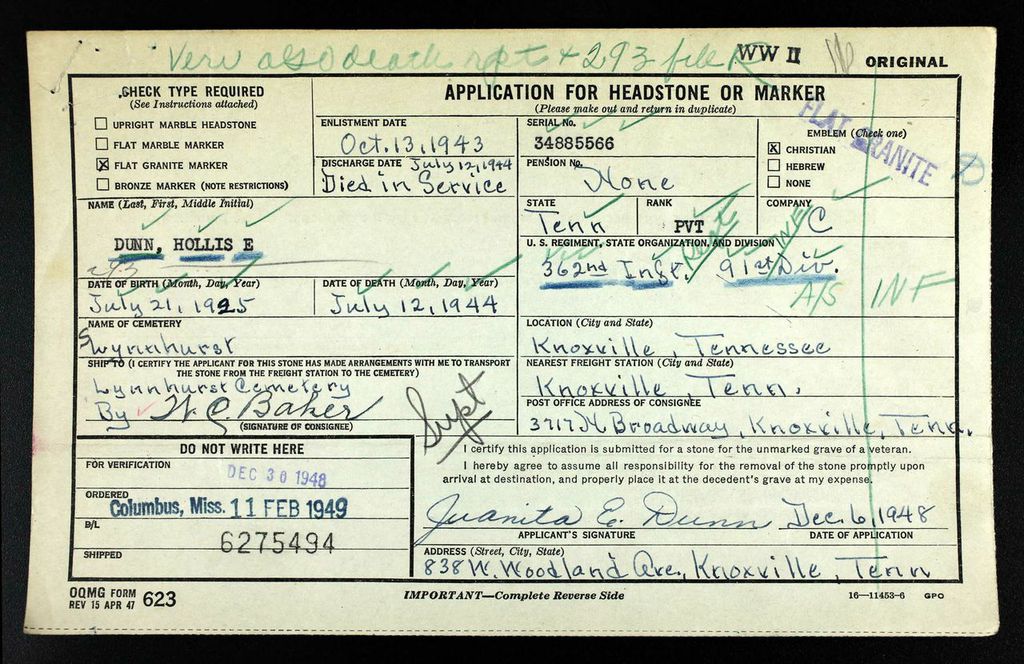 Veri also death rpt + 293 file
WW II
ORIGINAL
CHECK TYPE REQUIRED
(See Instructions attached)
UPRIGHT MARBLE HEADSTONE
FLAT MARBLE MARKER
X FLAT GRANITE MARKER
BRONZE MARKER (NOTE RESTRICTIONS)
APPLICATION FOR HEADSTONE OR MARKER
(Please make out and return in duplicate)
ENLISTMENT DATE
Oct. 13, 1943
DISCHARGE DATE July 12, 1944
Died in Service
SERIAL No.
34885566
PENSION No.
None
EMBLEM (Check one)
X CHRISTIAN
HEBREW
NONE
FLAT GRANITE
D
NAME (Last, First, Middle Initial)
DUNN, HOLLIS E
293
STATE
Tenn
RANK
PVT
COMPANY
C
U. S. REGIMENT, STATE ORGANIZATION, AND DIVISION
362nd Inf. 91st Div.
INF
A/S INF
DATE OF BIRTH (Month, Day, Year)
July 21, 1925
DATE OF DEATH (Month, Day, Year)
July 12, 1944
NAME OF CEMETERY
Lynnhurst
LOCATION (City and State)
Knoxville, Tennessee
SHIP TO (I CERTIFY THE APPLICANT FOR THIS STONE HAS MADE ARRANGEMENTS WITH ME TO TRANSPORT
THE STONE FROM THE FREIGHT STATION TO THE CEMETERY)
Lynnhurst Cemetery
By W. C. Baker
Supt
(SIGNATURE OF CONSIGNEE)
NEAREST FREIGHT STATION (City and State)
Knoxville, Tenn.
POST OFFICE ADDRESS OF CONSIGNEE
3717 N. Broadway, Knoxville, Tenn.
DO NOT WRITE HERE
FOR VERIFICATION
DEC 30 1948
ORDERED
Columbus, Miss. 11 FEB 1949
B/L
6275494
SHIPPED
I certify this application is submitted for a stone for the unmarked grave of a veteran.
I hereby agree to assume all responsibility for the removal of the stone promptly upon
arrival at destination, and properly place it at the decedent's grave at my expense.
Juanita E. Dunn Dec. 6, 1948
APPLICANT'S SIGNATURE
DATE OF APPLICATION
ADDRESS (Street, City, State)
838 W. Woodland Ave., Knoxville, Tenn
OQMG FORM
REV 15 APR 47 623
IMPORTANT—Complete Reverse Side
16—11453-6 GPO